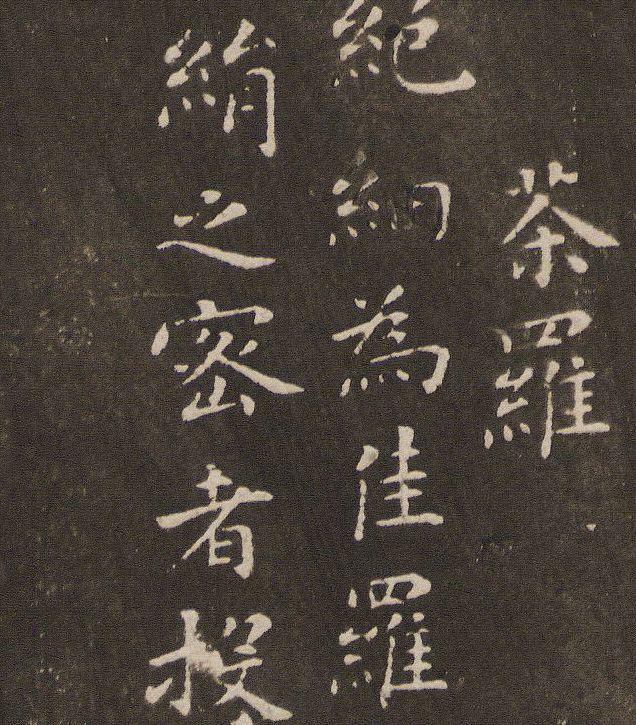 茶羅
絶細為佳羅
絹之密者投